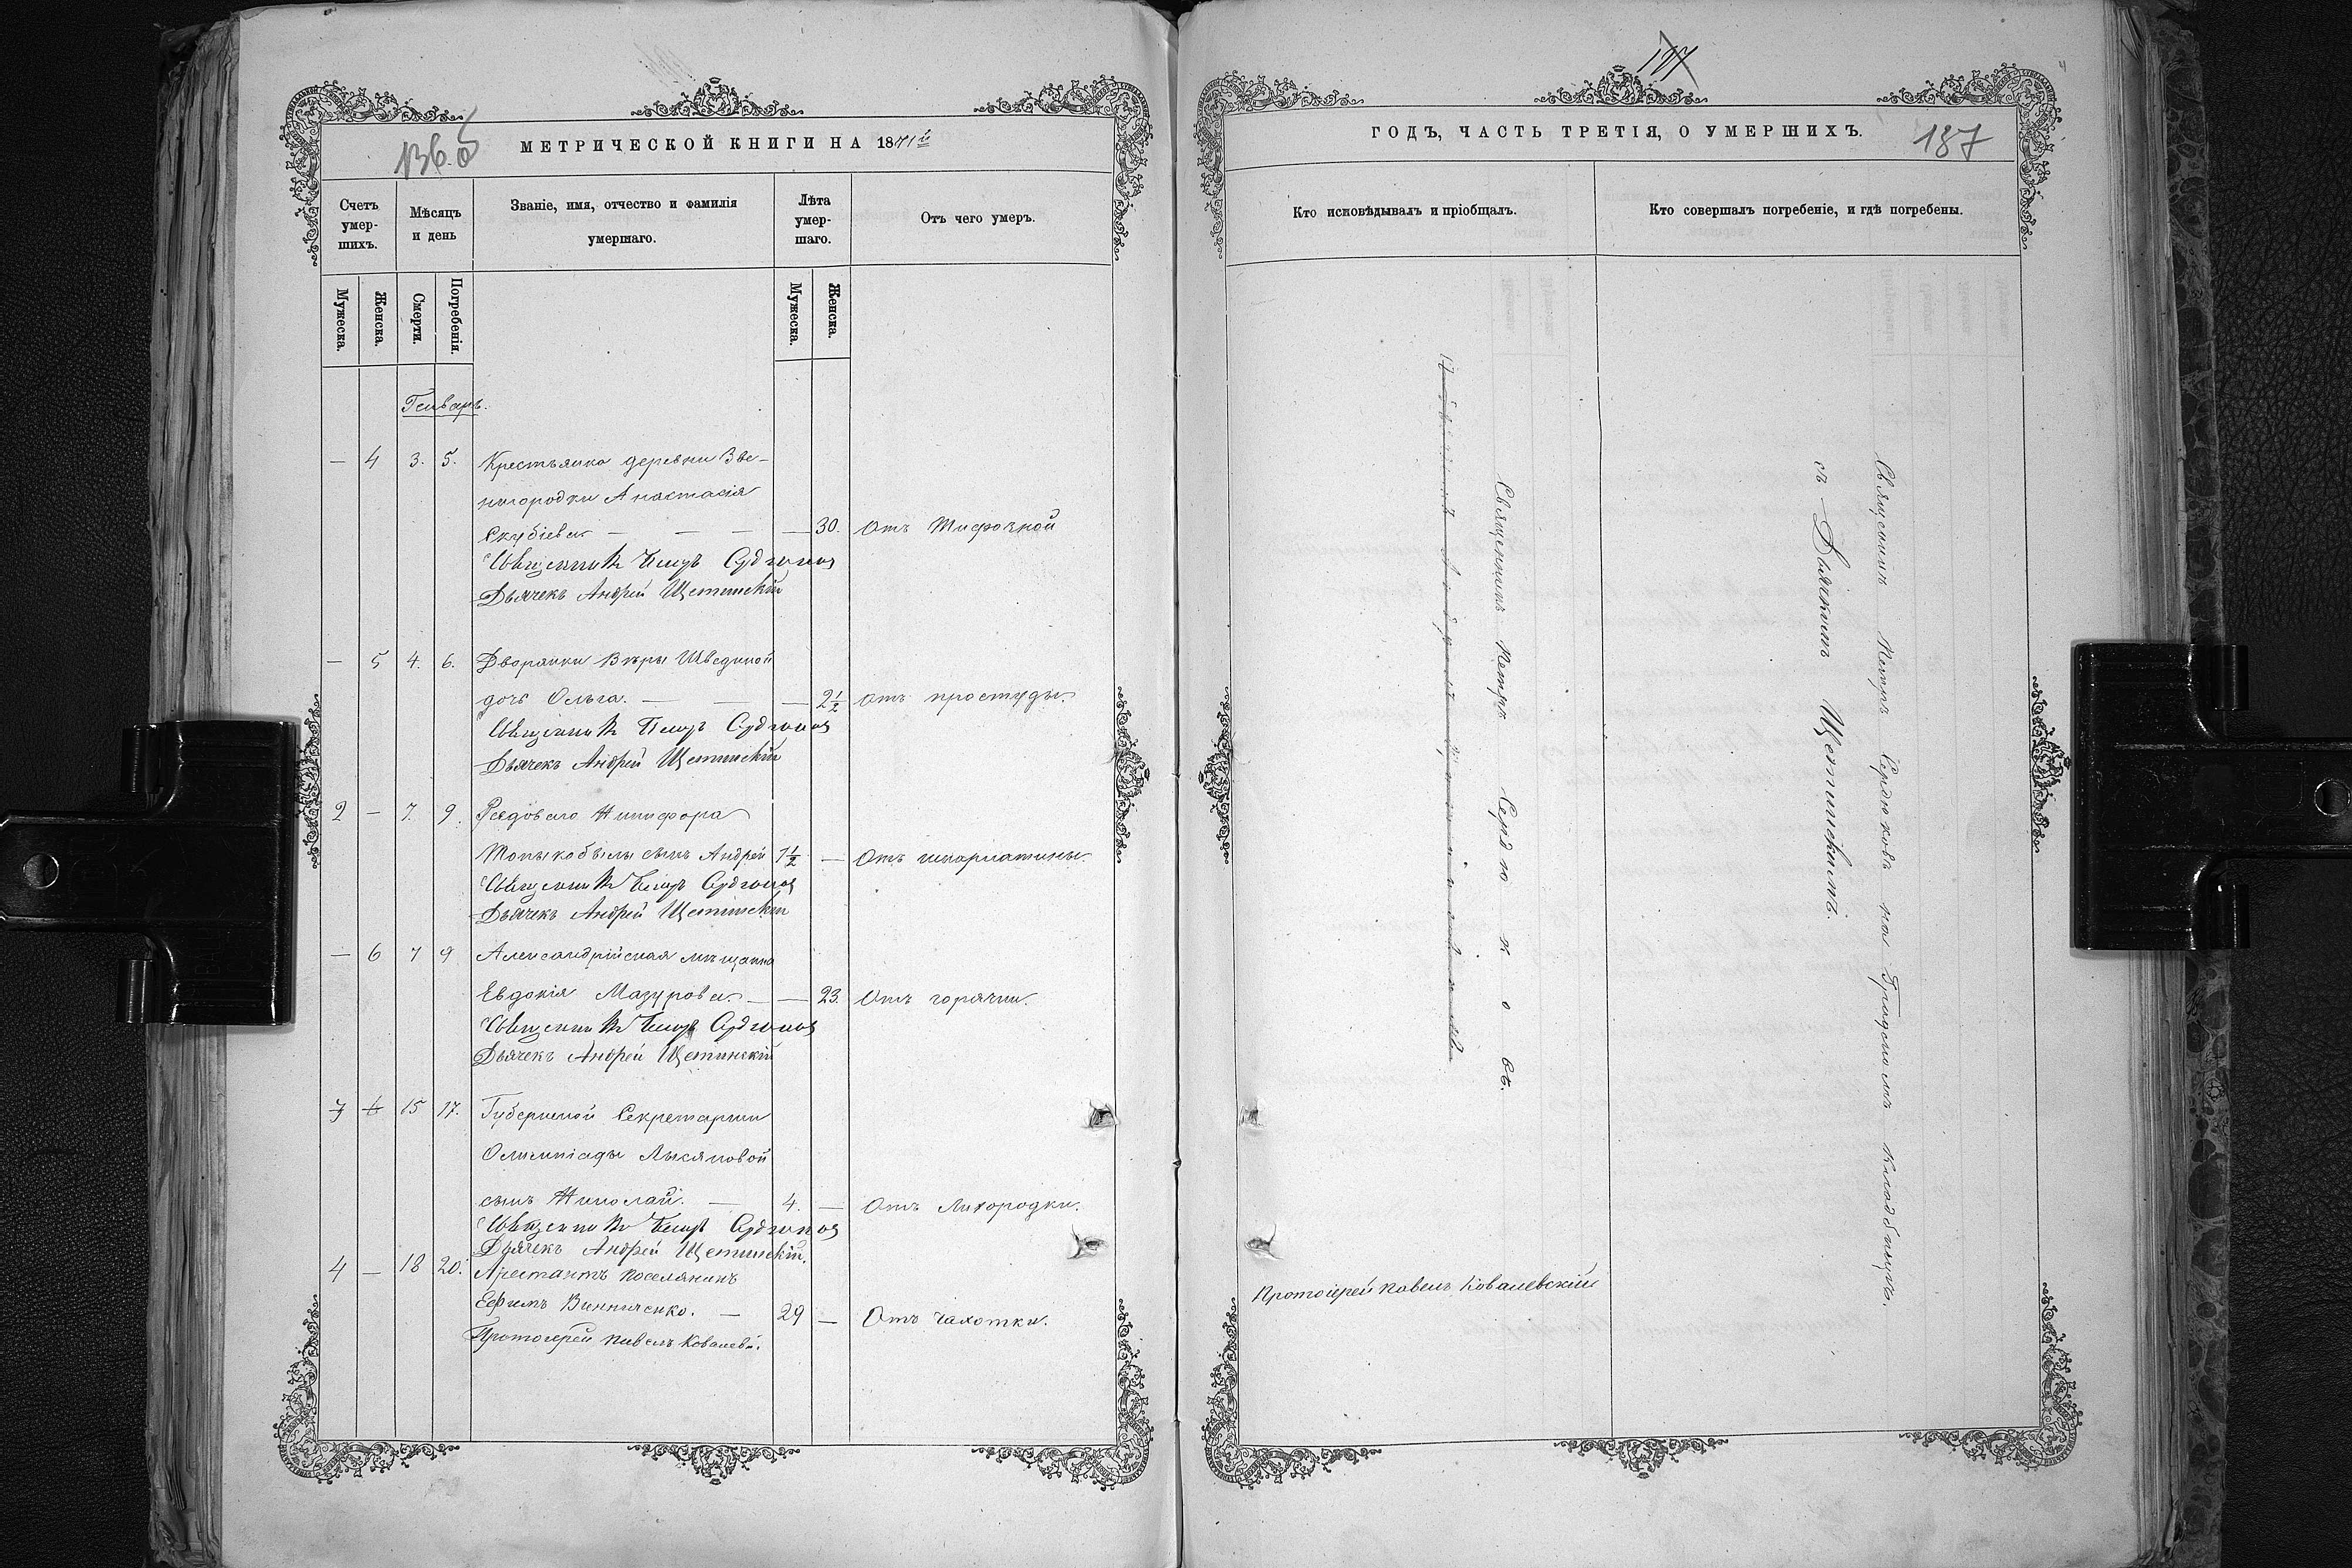 136 об
МЕТРИЧЕСКОЙ КНИГИ НА 1871й
Счетъ умер-шихъ.
Мѣсяцъ и день
Званіе, имя, отчество и фамилія умершаго.
Лѣта умер-шаго.
Отъ чего умеръ.
Мужеска.
Женска.
Смерти.
Погребенія.
Мужеска.
Женска.
Генварь.
— 4 3. 5. Крестьянка деревни Зве-
нигородки Анастасія
Скубіева — — — — 30. Отъ Тифозной
Священникъ Петръ Сердюковъ
Дьячекъ Андрей Щетинскій
— 5 4. 6. Дворянки Вѣры Швединой
дочь Ольга. — — — 2½ Отъ простуды.
Священникъ Петръ Сердюковъ
Дьячекъ Андрей Щетинскій
2 — 7. 9. Рядоваго Никифора
сынъ Андрей 1½ — Отъ шкарлатины.
Священникъ Петръ Сердюковъ
Дьячекъ Андрей Щетинскій
— 6 7 9 Александрійская мѣщанка
Евдокія Мазурова. — — 23. Отъ горячки.
Священникъ Петръ Сердюковъ
Дьячекъ Андрей Щетинскій
3 6 15 17. Губернской Секретарши
Олимпіады Лукяновой
сынъ Николай. — 4. — Отъ Лихородки.
Священникъ Петръ Сердюковъ
Дьячекъ Андрей Щетинскій.
4 — 18 20. Арестантъ поселянинъ
Ефимъ Винниченко. — 29 — Отъ Чахотки.
Протоіерей Павелъ Ковалевс.
177
ГОДЪ, ЧАСТЬ ТРЕТІЯ, О УМЕРШИХЪ.
187
Кто исповѣдывалъ и пріобщалъ.
Кто совершалъ погребеніе, и гдѣ погребены.
Священникъ Петръ Сердюковъ.
Священникъ Петръ Сердюковъ на Градскомъ кладбищѣ.
съ Дьячкомъ Щетинскимъ.
Протоіерей Павелъ Ковалевскій